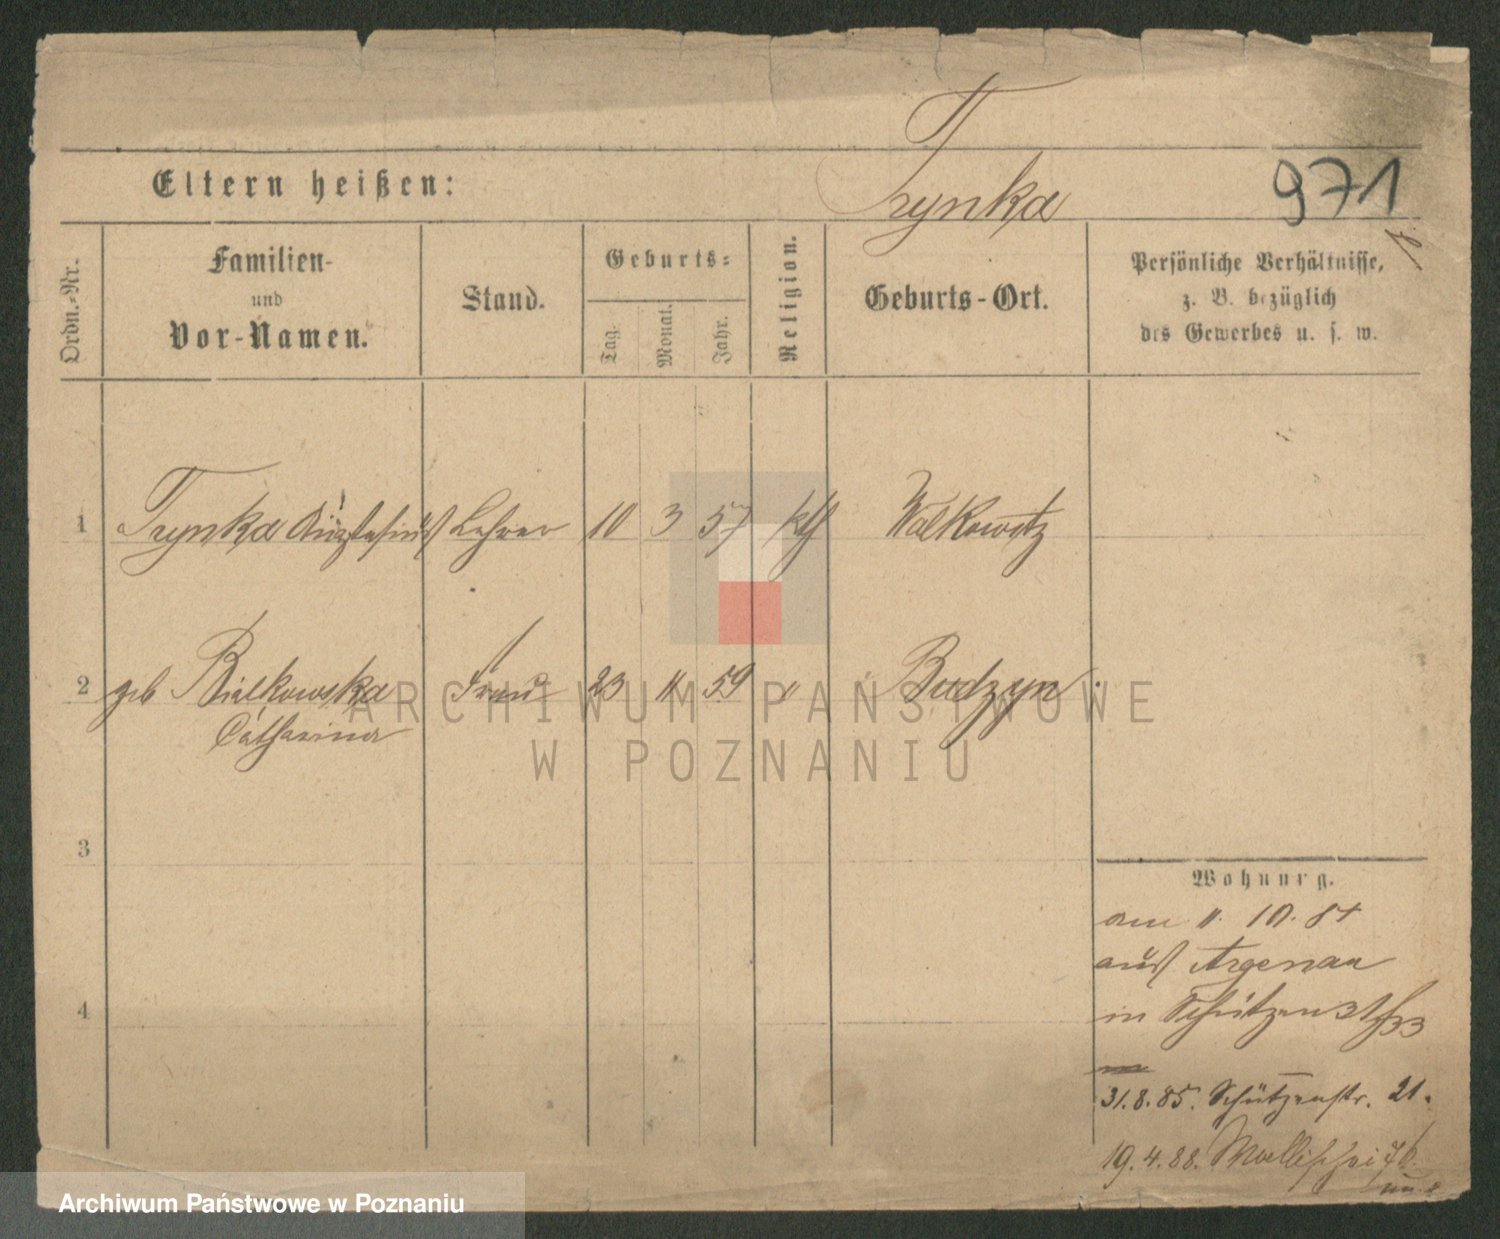 Trynka
971
Eltern heißen:
Ordn.-Nr.
Familien-
und
Vor-Namen.
Stand.
Geburts-
Tag.
Monat.
Jahr.
Religion.
Geburts-Ort.
Persönliche Verhältnisse,
z. B. bezüglich
des Gewerbes u. s. w.
1 Trynka Lehrer 10 3 57 kth Walkowitz
2 geb Bialkowska Frau 23 11 59 " Budzyn
Catharina
3
4
Wohnung.
am 11. 10. 84
aus Argenau
in Schützenstr 33
31. 8. 85. Schützenstr. 21.
19. 4. 88. Wallischei 76.
ARCHIWUM PAŃSTWOWE
W POZNANIU
Archiwum Państwowe w Poznaniu